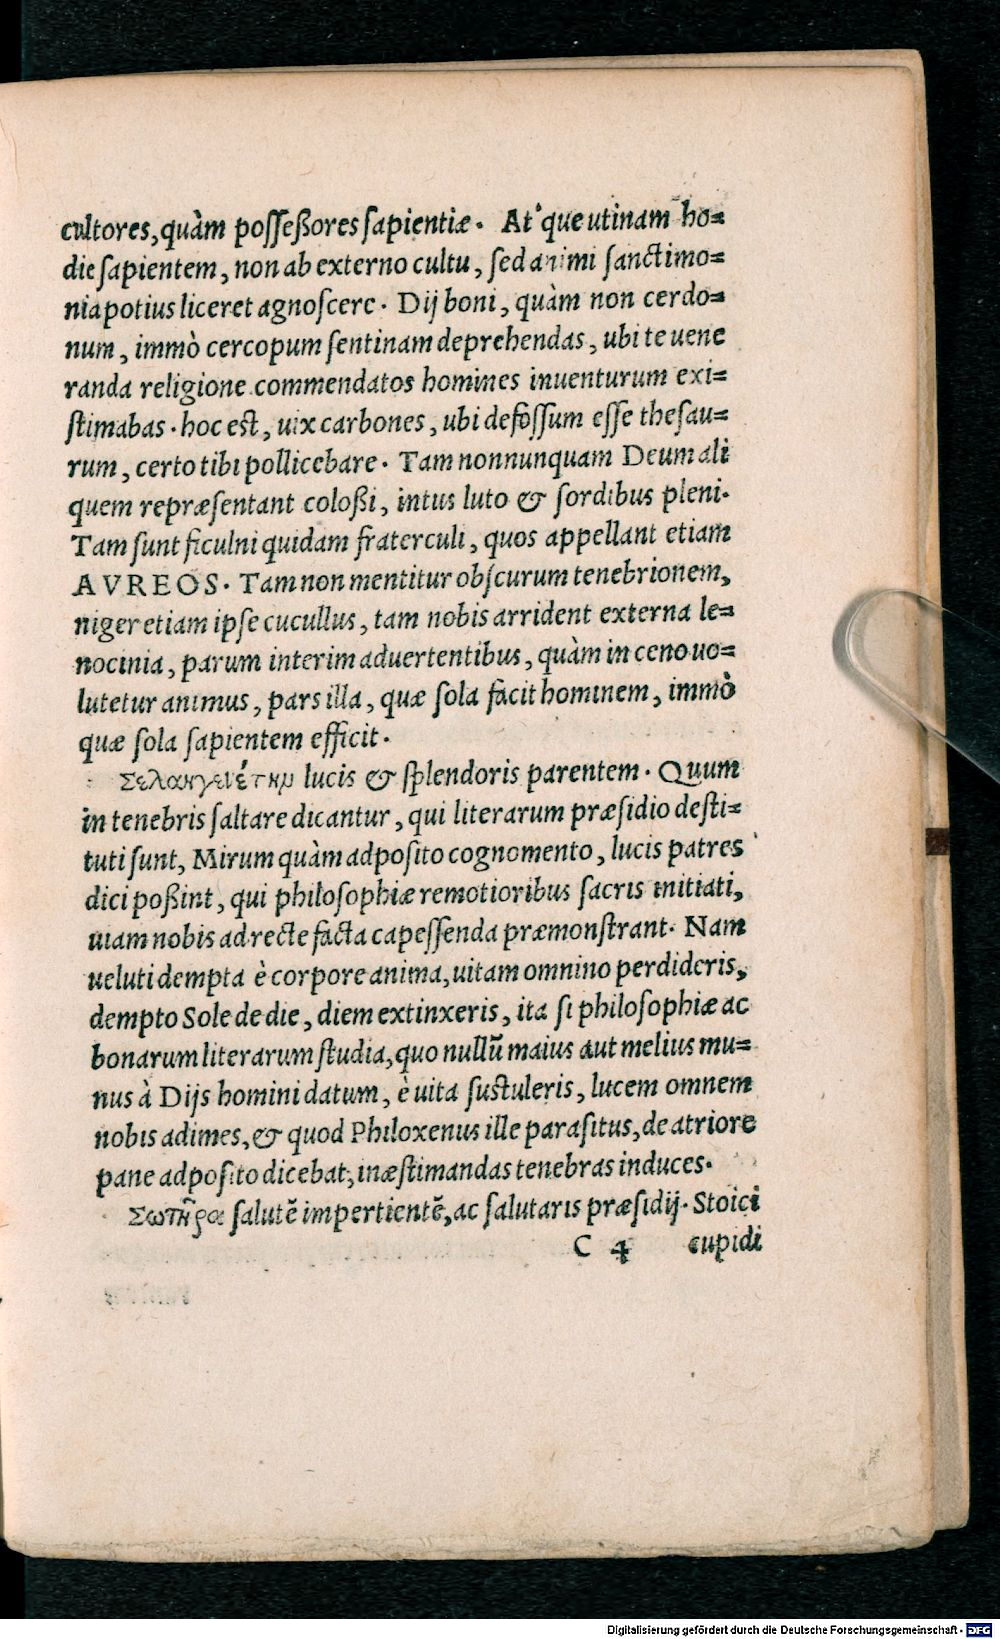 cultores, quàm posseßores sapientiæ. At´que utinam ho=
die sapientem, non ab externo cultu, sed animi sanctimo=
nia potius liceret agnoscere. Dij boni, quàm non cerdo=
num, immò cercopum sentinam deprehendas, ubi te uene
randa religione commendatos homines inuenturum exi=
stimabas. hoc est, uix carbones, ubi defossum esse thesau=
rum, certo tibi pollicebare. Tam nonnunquam Deum ali
quem repræsentant coloßi, intus luto & sordibus pleni.
Tam sunt ficulni quidam fraterculi, quos appellant etiam
AVREOS. Tam non mentitur obscurum tenebrionem,
niger etiam ipse cucullus, tam nobis arrident externa le=
nocinia, parum interim aduertentibus, quàm in ceno uo=
lutetur animus, pars illa, quæ sola facit hominem, immò
quæ sola sapientem efficit.
lucis & splendoris parentem. Quum
in tenebris saltare dicantur, qui literarum præsidio desti=
tuti sunt, Mirum quàm adposito cognomento, lucis patres
dici poßint, qui philosophiæ remotioribus sacris initiati,
uiam nobis ad recte facta capessenda præmonstrant. Nam
ueluti dempta è corpore anima, uitam omnino perdideris,
dempto Sole de die, diem extinxeris, ita si philosophiæ ac
bonarum literarum studia, quo nullũ maius aut melius mu=
nus à Dijs homini datum, è uita sustuleris, lucem omnem
nobis adimes, & quod Philoxenus ille parasitus, de atriore
pane adposito dicebat, inæstimandas tenebras induces.
Σωτῆρα salutẽ impertientẽ, ac salutaris præsidij. Stoici
C 4 cupidi
Digitalisierung gefördert durch die Deutsche Forschungsgemeinschaft - DFG